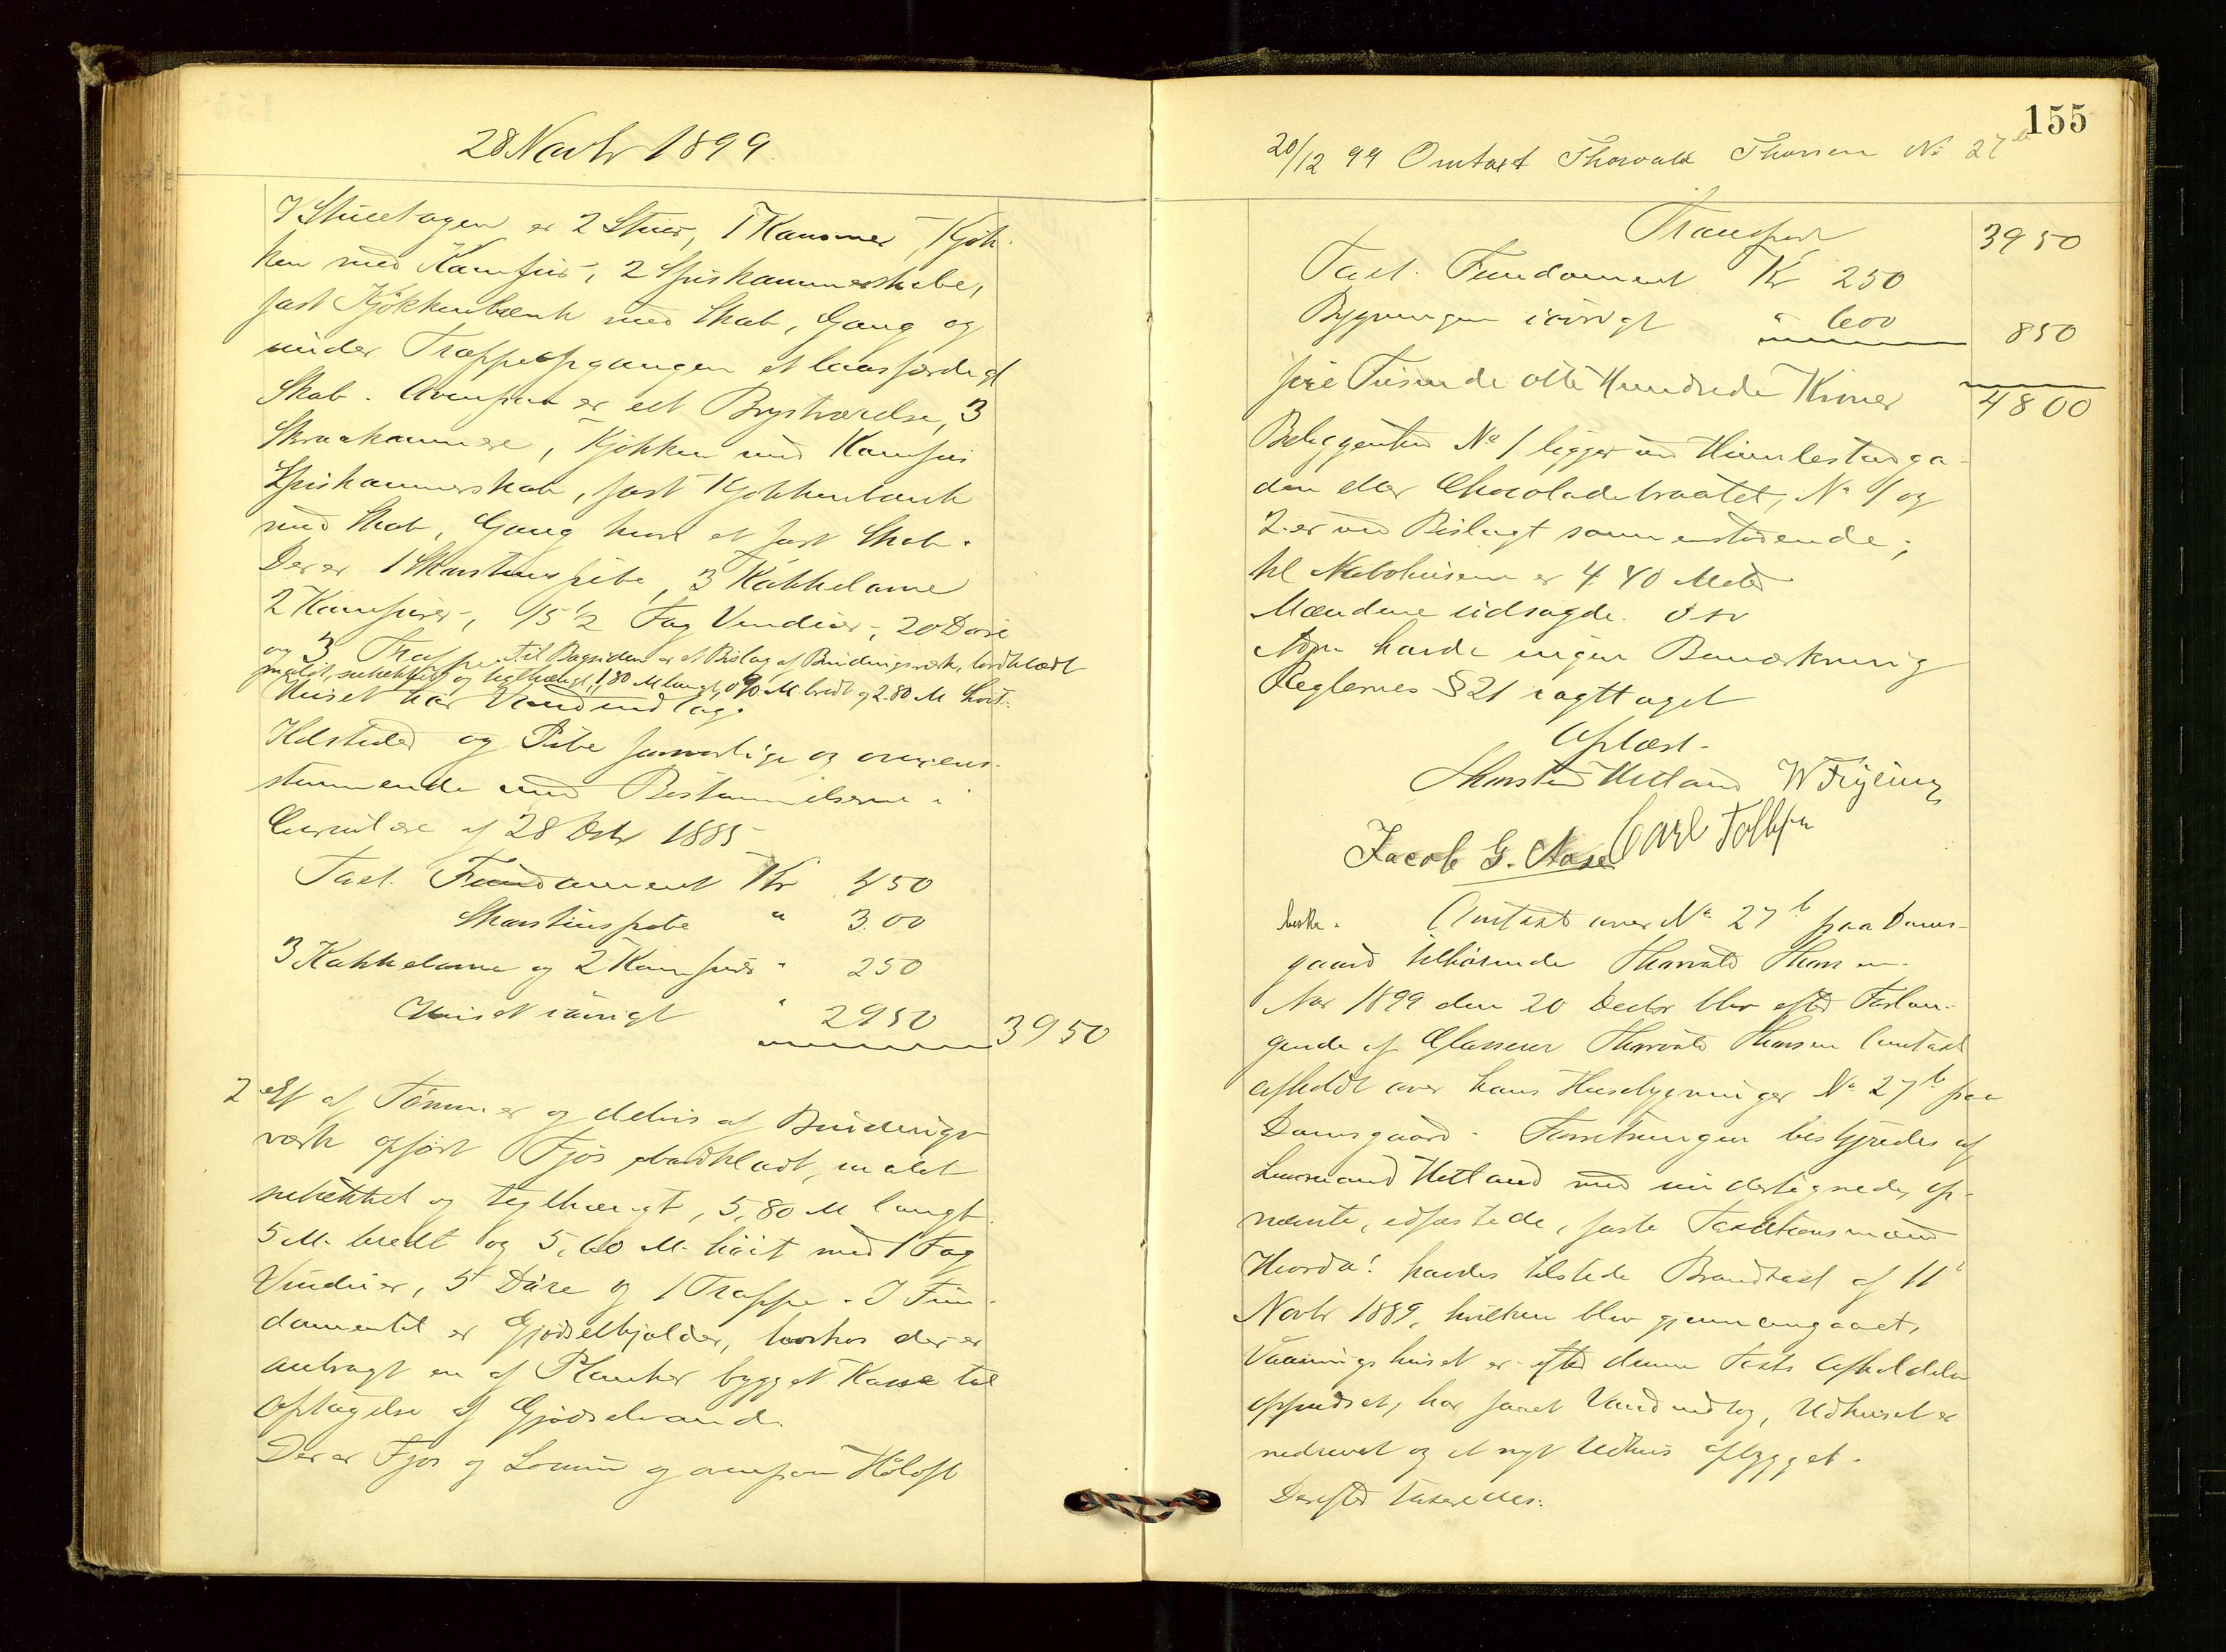 28 Novbr 1899.
I Stueetagen er 2 Stuer, 1 Kammer, Kjøk-
ken med Komfur, 2 Spiskammerskabe,
fast Kjøkkenbænk med Skab, Gang og
under Trappeopgangen et laasfærdigt
Skab. Ovenpaa er et Brystværelse, 3
Skraakammere, Kjøkken med Komfur
Spiskammerskab, fast Kjøkkenbænk
med Skab, Gang hvori et fast Skab.
Der er 1 Skorstenspibe, 3 Kakkelovne
2 Komfurer, 15 1/2 Fag Vinduer, 20 Døre
og 3 Trapper. Til Bagsiden er et Bislag af Bindingsværk, bordklædt
malet, suhækket og teglhængt, 1,80 M langt, 0,90 M bredt og 2.80 M høit.
Huset har Vandindlæg.
Ildsteder og Pibe forsvarlige og overens-
stemmende med Bestemmelserne i
Circulære af 28 Oktr 1885
Taxt. Fundament Kr 450
Skorstenspibe " 300
3 Kakkelovne og 2 Komfurer " 250
Huset iøvrigt " 2950 3950
2 Et af Tømmer og delvis af Bindings-
værk opført Fjøs, bordklædt, malet
suhækket og teglhængt, 5,80 M langt
5 M. bredt og 5,60 M. høit med 1 Fag
Vinduer, 5 Døre og 1 Trappe. I Fun-
damentet er Gjødselkjælder, hvorhos der er
anbragt en af Planker bygget Kasse til
Optagelse af Gjødselvand.
Der er Fjøs og Lemme og ovenpaa Høloft
155
20/12 99 Omtaxt Thorvald Thorsen No 27b
Transport 3950
Taxt. Fundament Kr 250
Bygningen iøvrigt " 600 850
fire Tusinde otte Hundrede Kroner 4800
Beliggenhed No 1 ligger ved
den eller No 1 og
2 er ved Bislaget sammenstødende;
til Nabohusene er 4.40 Meter
Mændene udsagde. osv
havde ingen Bemærkning
Reglernes § 21 iagttaget
Oplæst.
Thorsten Hetland W
Jacob G. Carl
Omtaxt over No 27b paa Dams-
gaard tilhørende Thorvald Thorsen.
Aar 1899 den 20 Decbr blev efter Forlan-
gende af Thorvald Thorsen Omtaxt
afholdt over hans Husebygninger No 27b paa
Damsgaard. Forretningen bestyredes af
Lensmand Hetland med undertegnede, op-
nævnte, edfæstede, faste Taxationsmænd
Hvorda! havdes tilstede Brandtaxt af 11
Novbr 1889, hvilken blev gjennemgaaet,
Vaaningshuset er efter denne Taxts Afholdelse
oppudset, har faaet Vandindlæg, Udhuset er
nedrevet og et nyt Udhus opbygget.
Derefter taxeredes: